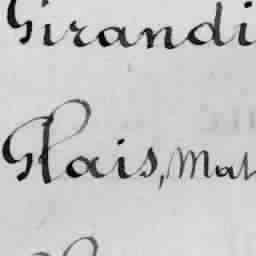 Girandi
Glais, Mat